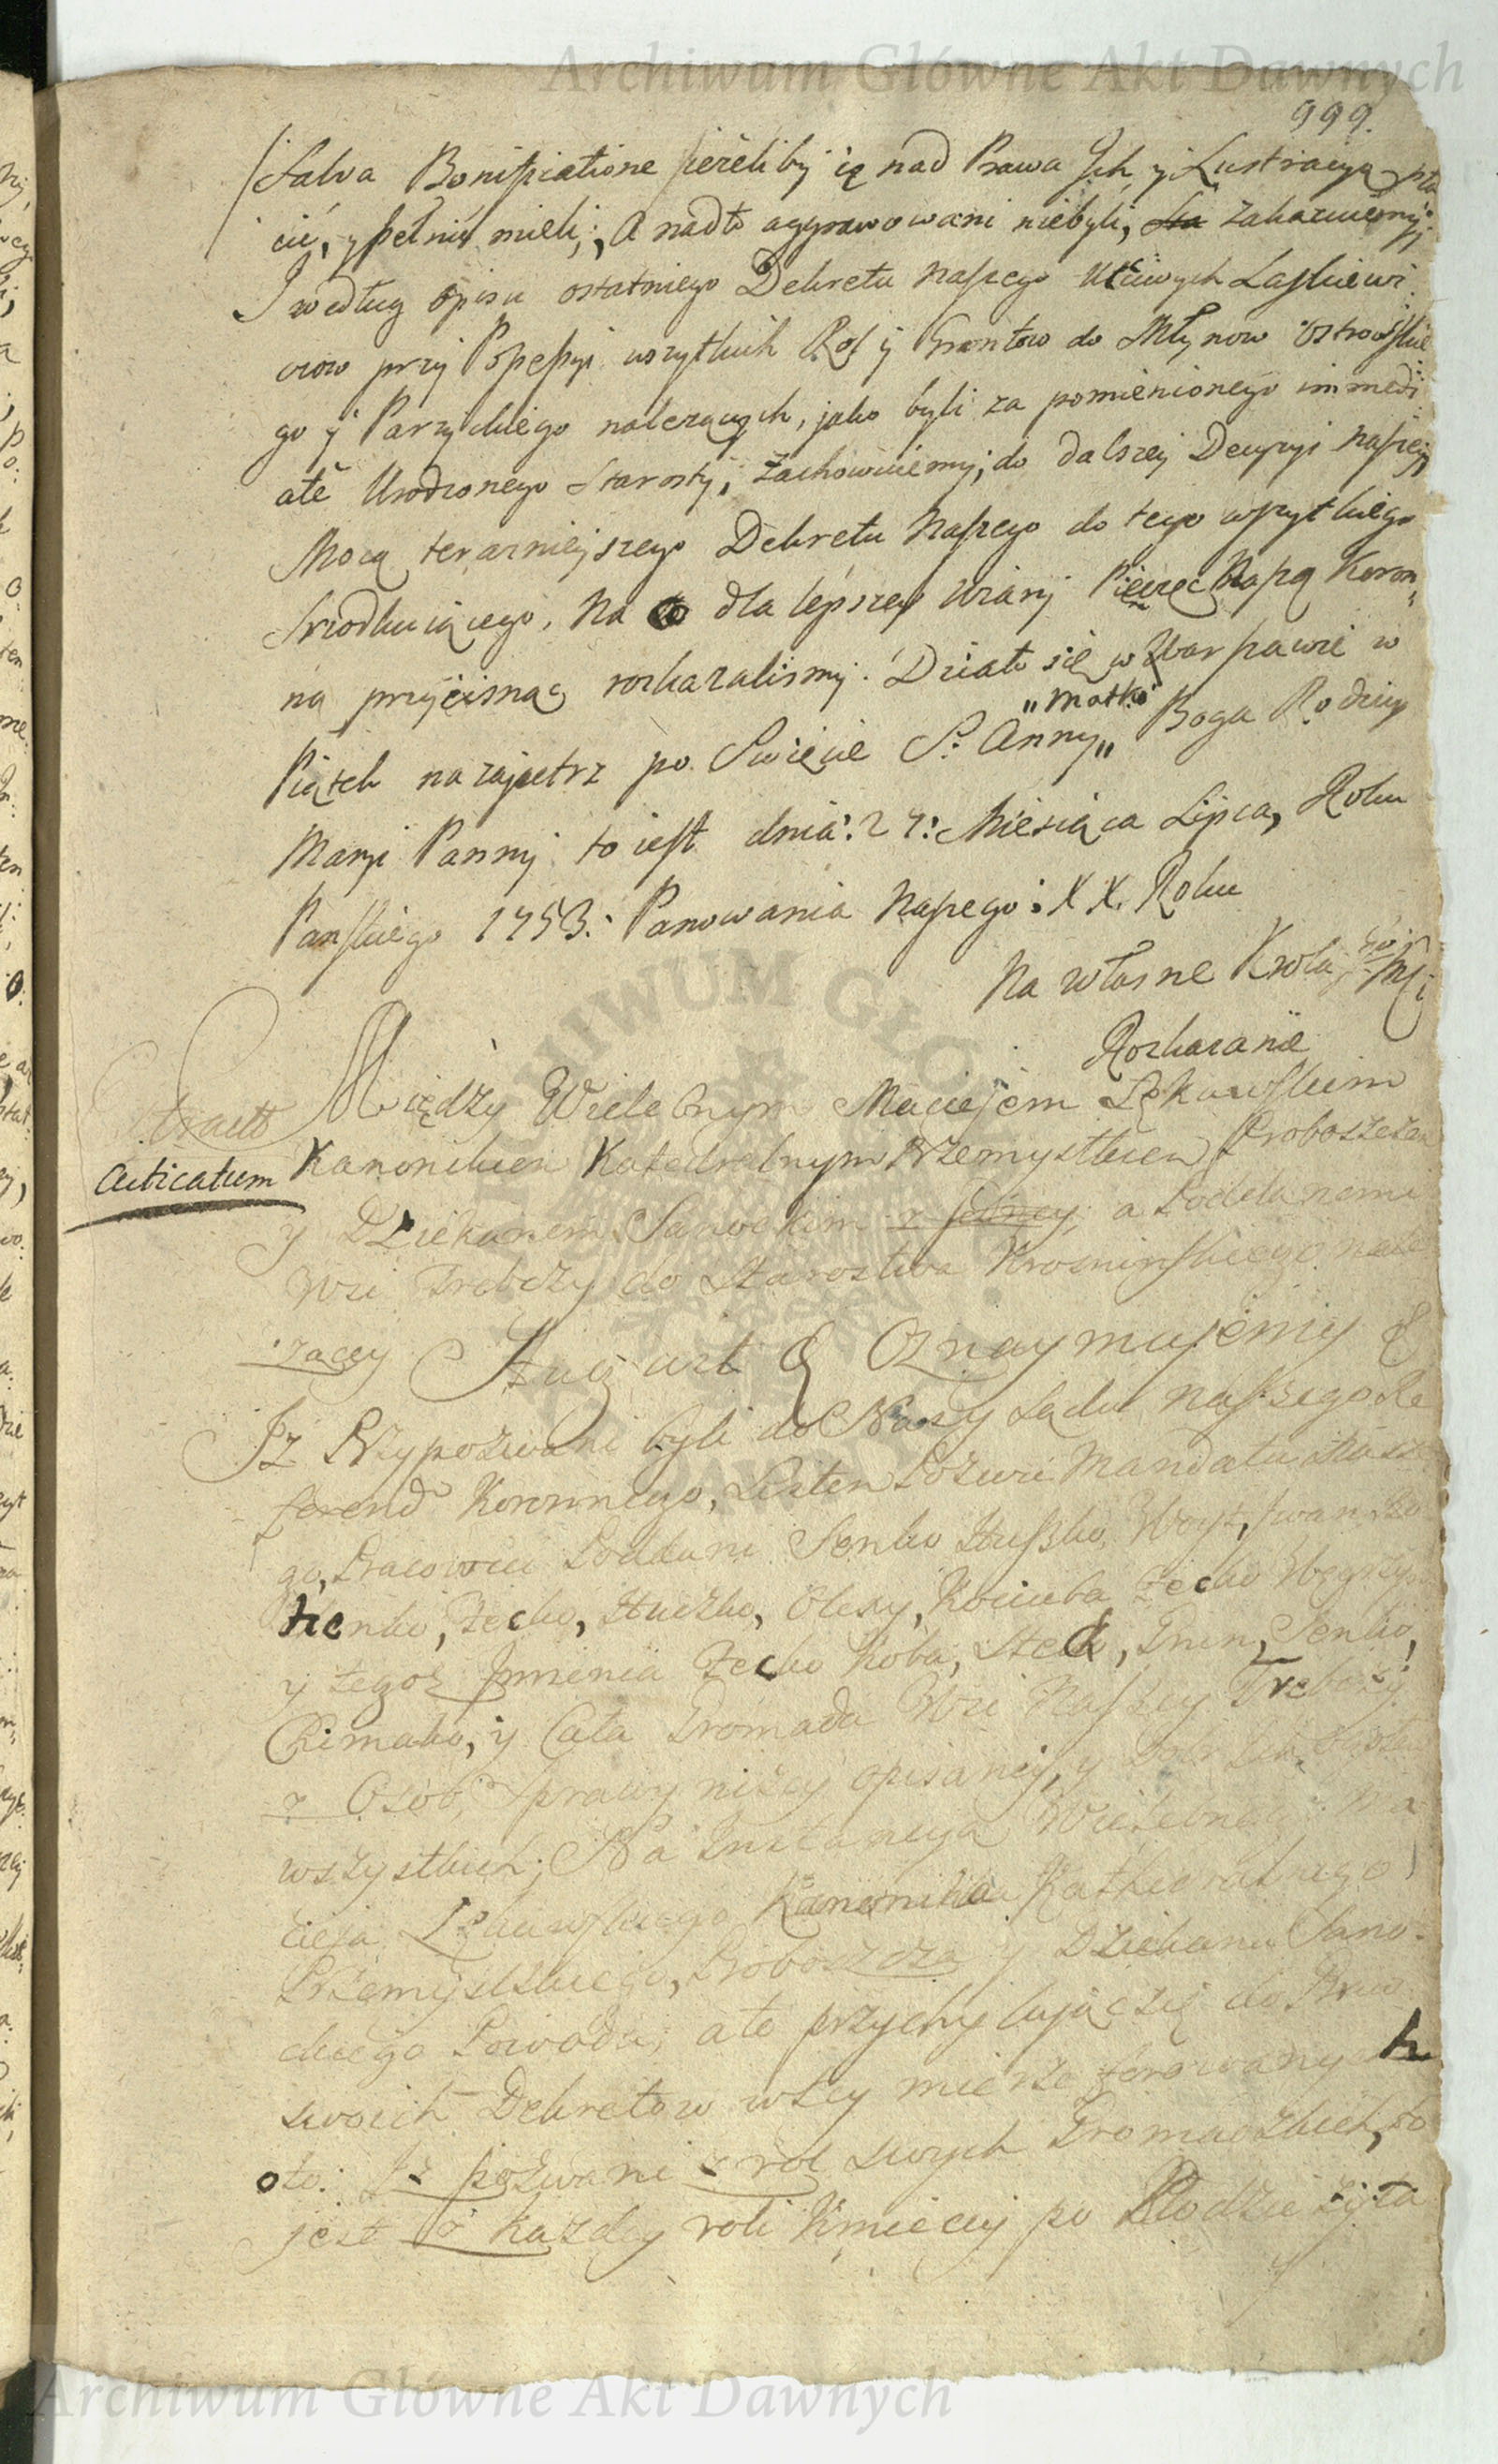 Archiwum Główne Akt Dawnych
999.
Salva Bonificatione jeżeliby ię nad Prawa Ich y Lustracyą pła
cić, y pełnić mieli; A nadto aggrawowani niebyli, Sta zakazuiemy;
I według opisu ostatniego Dekretu Naszego Utciwych Laskiewi
czow przy Possessyi wszytkich Rol y Gruntow do Młynow Ostrowskie
go y Parzyckiego nalezących, jako byli za pomienionego immedi
ate Urodzonego Starosty, zachowuiemy; do dalszey Decyzyi Naszey
Mocą teraznieyszego Dekretu Naszego do tego wszytkiego
srzodkuiącego, Na co dla lepszey Wiary Pieczęć Naszą Koron
ną przycisnąć rozkazalismy. Działo się w Warszawie w
Piątek nazajutrz po Swięcie S: Anny „Matki" Boga Rodzicy
Maryi Panny to iest dnia: 27: Miesiąca Lipca, Roku
Panskiego 1753: Panowania Naszego: XX. Roku
Na własne Krola Jo Mci
Rozkazanie
Między Wielebnym Maciejem Lękawskim
Acticatum
Kanonikiem Katedralnym Przemyslkiem Proboszczem
y Dziekanem Sanockim z jedney, a Poddanemi
Wsi Trebczy do Starostwa Krosninskiego nale
zącey August &c Oznaymujemy &
Iz Przypozwani byli do Naszy Sądu Naszego Re
ferend Koronnego, Listem Pozwu Mandatu Nasze
go, Pracowici Poddani Senko Huszko, Woyt, Iwan
Fecko, Huczko, Olexy, Kociuba Fecko Węgrzyn
y tegoz Jmienia Fecko Koba, Steck, Senko,
y Cała Gromada Wsi Naszey Trebczy
z Osob, Sprawy niżey opisaney, y Dobr Ich
wszystkich; Na Instancya Wielebnego Ma
cieja Lękawskiego Kanonika Kathedralnego
Przemyslskiego, Proboszcza y Dziekana Sano
ckiego Powoda; ato przychylując się do Praw
swoich Dekretow wtey mierze ferowanych
oto: Iz pozwani z rol swych Gromadzkich, to
jest z każdey roli Kmiecey po Kłodzie żyta
Archiwum Główne Akt Dawnych